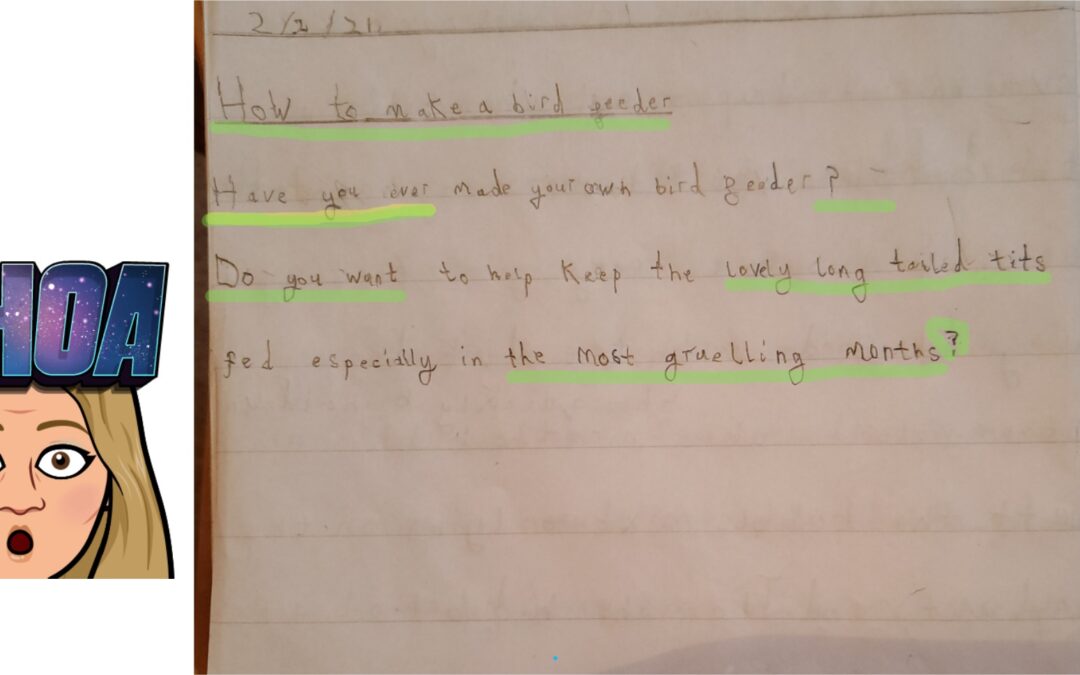 2/2/21
How to make a bird feeder
Have you ever made your own bird feeder?
Do you want to help keep the lovely long tailed tits
fed especially in the most gruelling months?
HOA